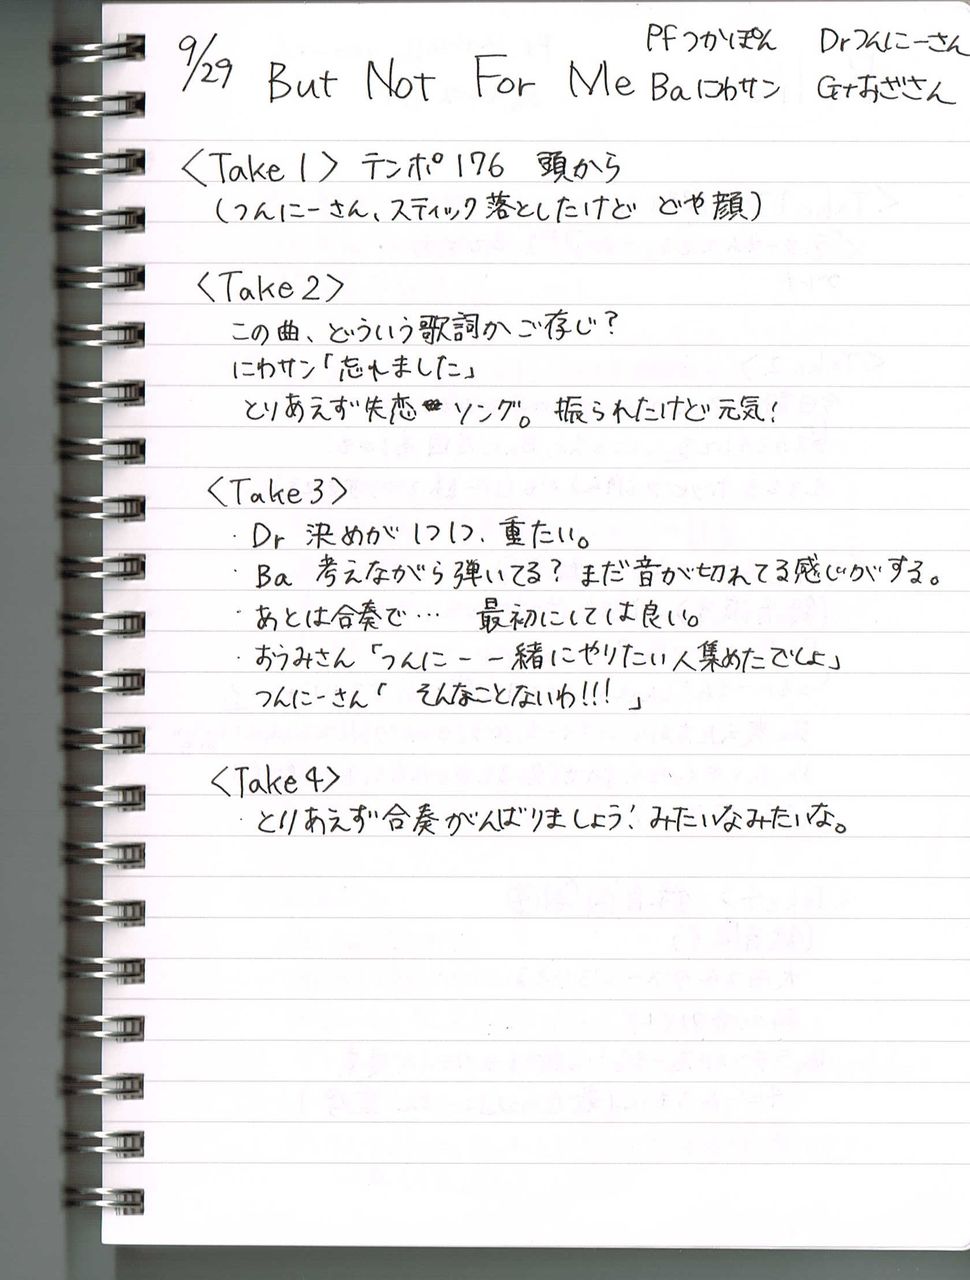 9/29 But Not For Me
Pfつかぽん Drつんにーさん
Baにわサン Gtおざさん
<Take 1> テンポ176 頭から
(つんにーさん、スティック落としたけど どや顔)
<Take 2>
この曲、どういう歌詞かご存じ?
にわサン「忘れました」
とりあえず失恋ソング。振られたけど元気!
<Take 3>
・Dr 決めが1つ1つ、重たい。
・Ba 考えながら弾いてる?まだ音が切れてる感じがする。
・あとは合奏で… 最初にしては良い。
・おうみさん「つんにーー緒にやりたい人集めたでしょ」
つんにーさん「そんなことないわ!!!」
<Take 4>
・とりあえず合奏がんばりましょう!みたいなみたいな。